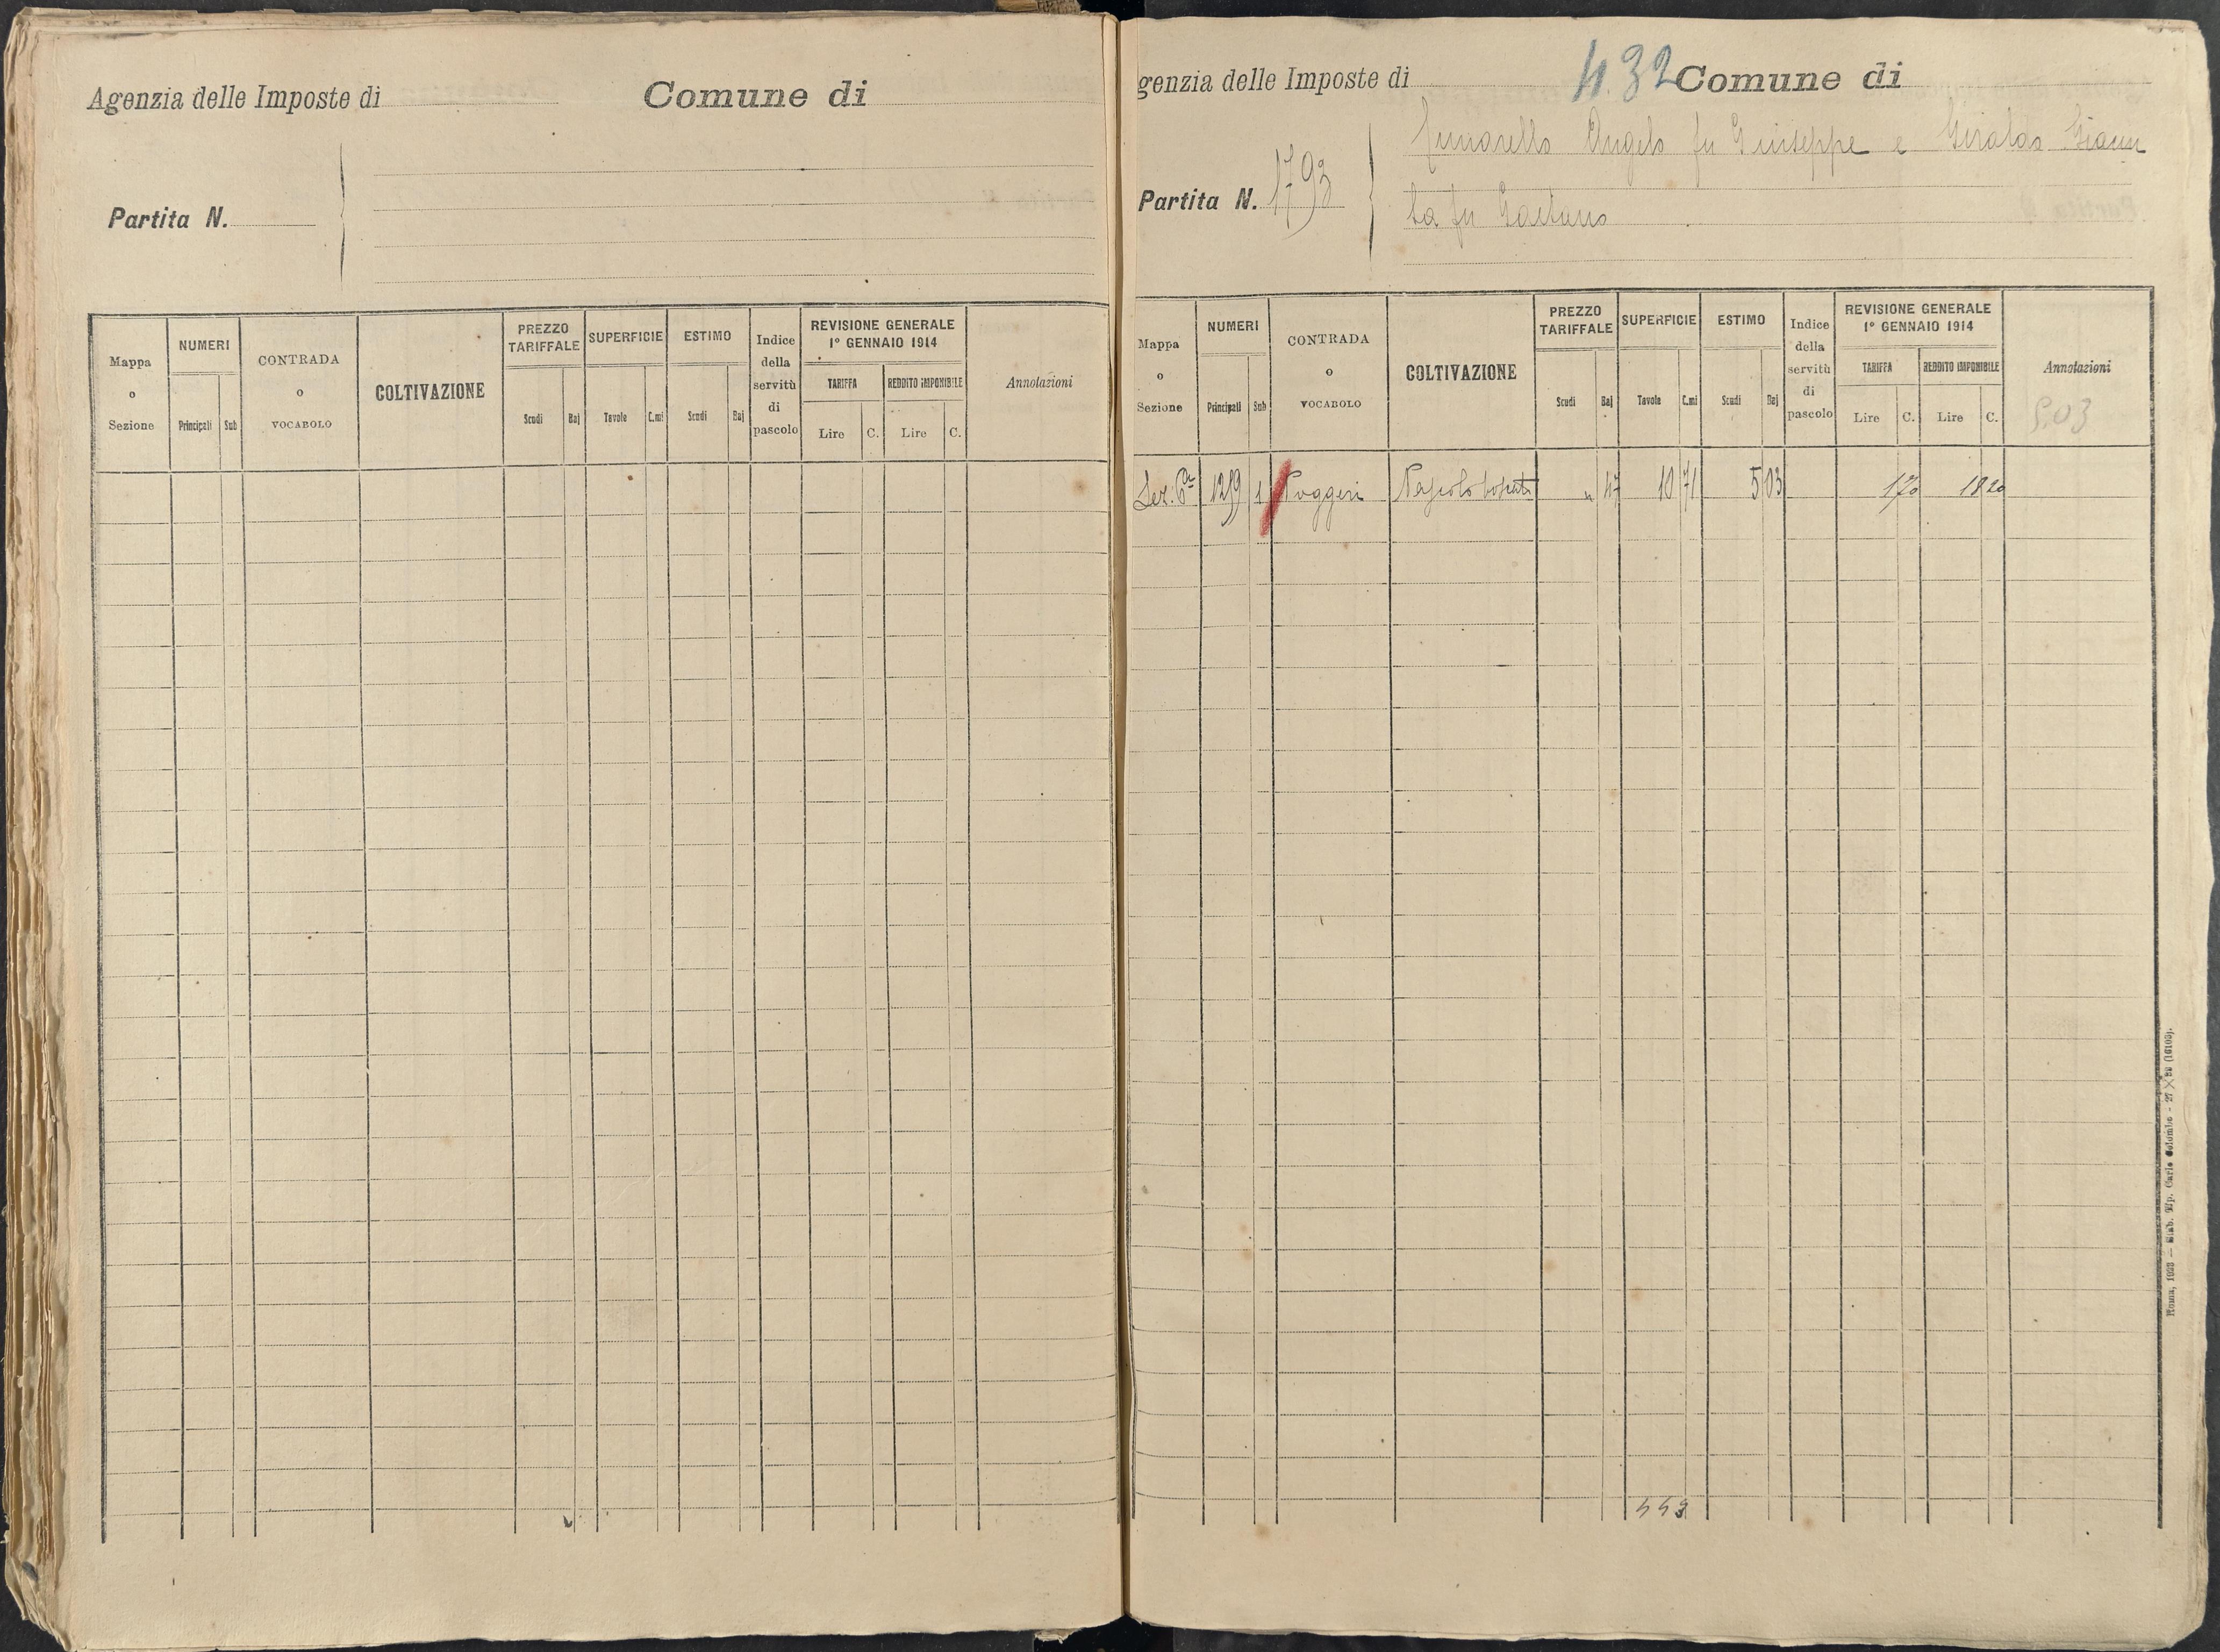 Agenzia delle Imposte di Comune di
Partita N.
Mappa o Sezione
NUMERI
Principali Sub
CONTRADA o VOCABOLO
COLTIVAZIONE
PREZZO TARIFFALE
Scudi Baj
SUPERFICIE
Tavole C.mi
ESTIMO
Scudi Baj
Indice della servitù di pascolo
REVISIONE GENERALE
1° GENNAIO 1914
TARIFFA REDDITO IMPONIBILE
Lire C. Lire C.
Annotazioni
genzia delle Imposte di 432 Comune di
Angelo fu Giuseppe e Giralda
Partita N. 1793
fu Gaetano
Mappa o Sezione
NUMERI
Principali Sub
CONTRADA o VOCABOLO
COLTIVAZIONE
PREZZO TARIFFALE
Scudi Baj
SUPERFICIE
Tavole C.mi
ESTIMO
Scudi Baj
Indice della servitù di pascolo
REVISIONE GENERALE
1° GENNAIO 1914
TARIFFA REDDITO IMPONIBILE
Lire C. Lire C.
Annotazioni
5.03
Sez. 6a 1259 1 47 10 71 5 03 1 70 18 20
443
Roma, 1923 — Stab. Tip. Carlo Colombo